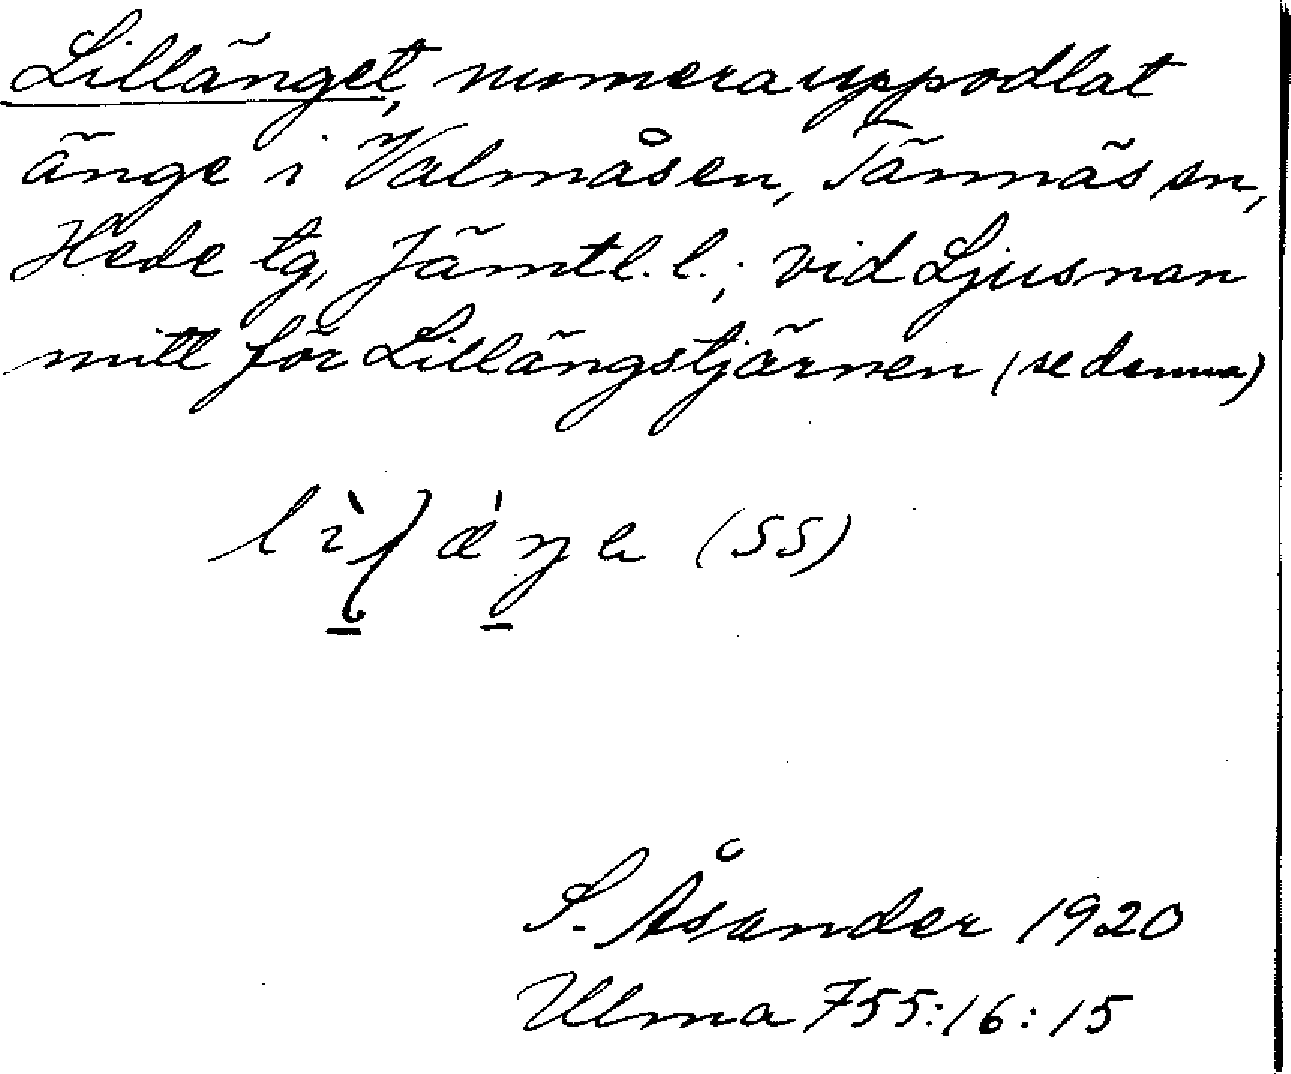 Lillänget, numera uppodlat
änge i Valmåsen, Tännäs sn,
Hede tg, Jämtl. l.; vid Ljusnan
mitt för Lillängstjärnen (se denna)
(SS)
S. Åsander 1920
Ulma 755:16:15